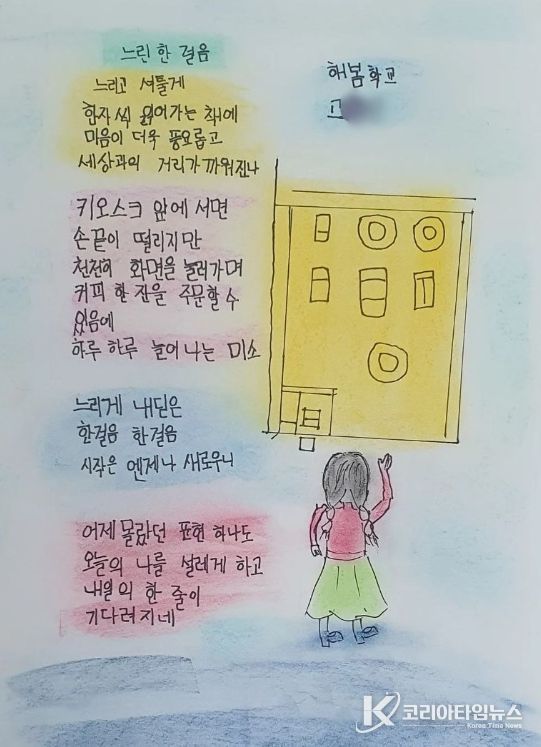 느린 한 걸음
해봄학교
고
느리고 서툴게
한자씩 읽어가는 책에
마음이 더욱 풍요롭고
세상과의 거리가 까워진나
키오스크 앞에 서면
손끝이 떨리지만
천천히 화면을 눌러가며
커피 한 잔을 주문할 수
있음에
하루 하루 늘어나는 미소
느리게 내딛은
한걸음 한걸음
시작은 언제나 새로우니
어제 몰랐던 표현 하나도
오늘의 나를 설레게 하고
내일의 한 줄이
기다려지네
K 코리아타임뉴스
Korea Time News